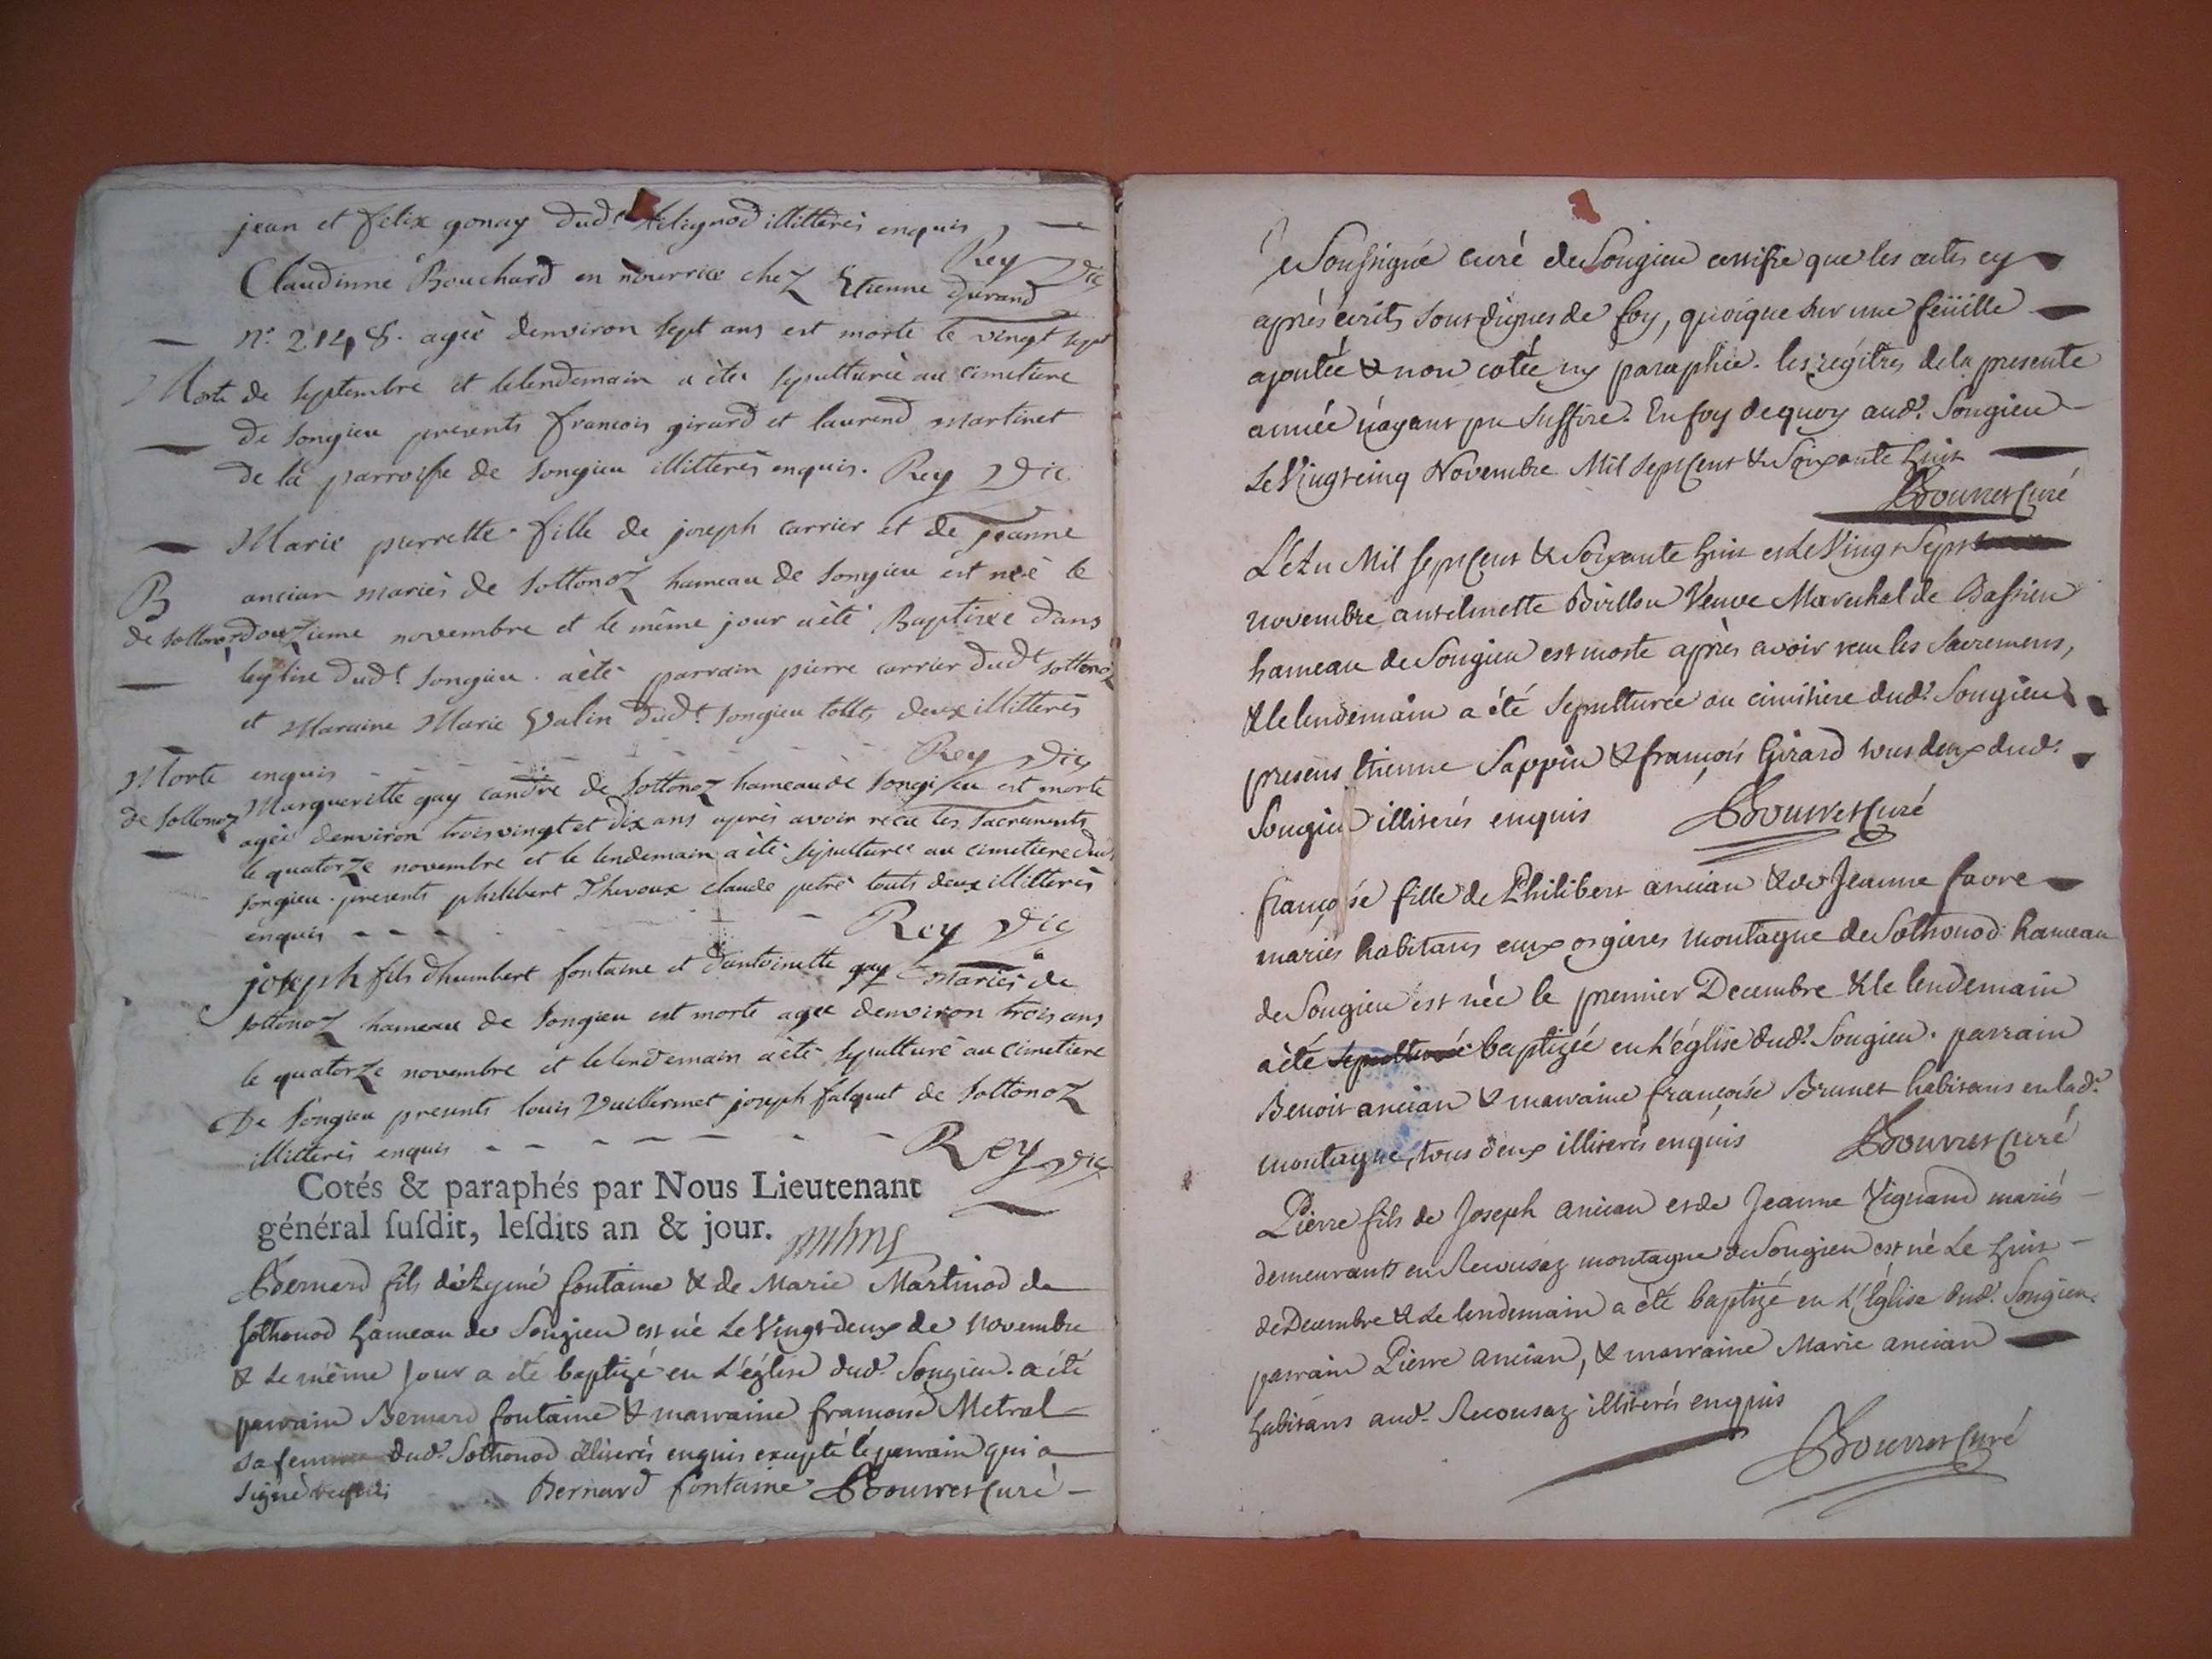 jean et felix gonay dud.t hilignod illitterés enquis
Rey Vic
Claudinne Bouchard en nourrice chez Etienne durand
n.o 2148. ageè denviron sept ans est morte le vingt sept
Morte de septembre et lelendemain a été sepulturèe au cimetiere
de songieu presents francois girard et laurend martinet
de la parroisse de songieu illitterés enquis. Rey Vic
Marie pierrette fille de joseph carrier et de jeanne
B ancian mariés de sottonoz hameau de songieu est nèe le
de sottonoz douzieme novembre et le même jour aèté Baptisèe dans
leglise dud.t songieu. aèté parrain pierre carrier dud.t sottonoz
et Maraine Marie Valin dud.t songieu touts deux illitterés
enquis Rey Vic
Morte Margueritte gay candre de sottonoz hameau de songieu est morte
de sottonoz ageè denviron troisvingt et dix ans aprés avoir recu les sacrements
le quatorze novembre et le lendemain a été sepulturee au cimetiere dud.
songieu. presents philibert Thevoux claude petre touts deux illitterés
enquis Rey Vic
joseph fils dhumbert fontaine et dantoinette gay mariés de
sottonoz hameau de songieu est morte agee denviron trois ans
le quatorze novembre et lelendemain aété sepulturé au cimetiere
De songieu presents louis Vuillermet joseph falquet de sottonoz
illitterés enquis Rey Vic
Cotés & paraphés par Nous Lieutenant
général ſuſdit, leſdits an & jour.
Bernard fils d'Aymé fontaine & de Marie Martinod de
sothonod hameau de Songieu est né Le Vingt deux de novembre
& Le même Jour a été baptizé en L'église dud. Songieu. a été
parrain Bernard fontaine & marraine francoise Metral
sa femme dud. Sothonod illiterés enquis excepté le parrain qui a
signé Bernard fontaine Bouvret Curé
Je Soussigné curé de Songieu certifie que les actes cy
aprés écrits sont dignes de foy, quoique sur une feüille
ajoutée & non cotée ny paraphée. les régitres de la presente
année n'ayant pu suffire. En foy de quoy aud. Songieu
Le Vingt cinq Novembre Mil sept Cent & Soixante huit
Bouvret Curé
L'An Mil sept Cent & Soixante huit et Le Vingt Sept
novembre antelmette Brillon Veuve Marechal de Bassieu
hameau de Songieu est morte aprés avoir recu les Sacremens,
& le lendemain a été sepulturée au cimitiere dud. Songieu
presens Etienne Sappin & françois Girard tous deux dud.
Songieu illiterés enquis Bouvret Curé
françoise fille de Philibert ancian & de Jeanne favre
mariés habitans aux orgieres montagne de Sothonod hameau
de Songieu est née le premier Decembre & le lendemain
a été sepulturé baptizée en L'église dud. Songieu. parrain
Benoit ancian & marraine françoise Brunet habitans en lad.
montagne, tous deux illiterés enquis Bouvret Curé
Pierre fils de Joseph ancian et de Jeanne Vignand mariés
demeurants en Recousaz montagne de Songieu est né Le huit
de Decembre & Le lendemain a été baptizé en L'Eglise dud. Songieu.
parrain Pierre ancian, & marraine Marie ancian
habitans aud. Recousaz illiterés enquis
Bouvret Curé